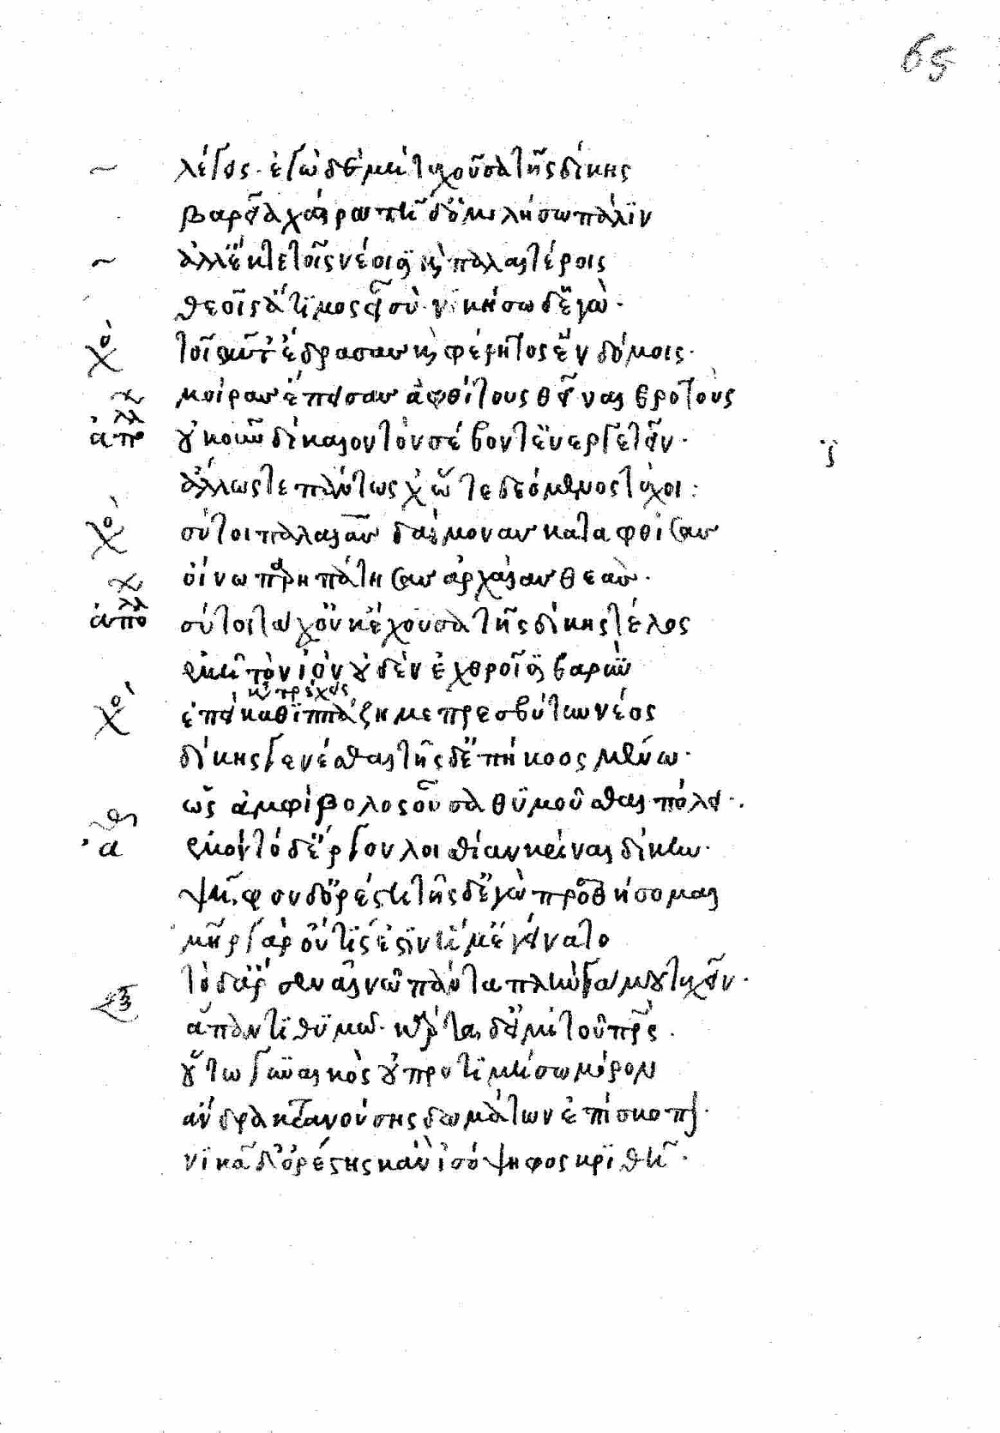 65
λέγεις· ἐγὼ δὲ μὴ τυχοῦσα τῆς δίκης
βαρεῖα χώρᾳ τῇδ' ὁμιλήσω πάλιν
ἀλλ' ἔν τε τοῖς νέοισι καὶ παλαιτέροις
θεοῖς ἄτιμος εἶ σύ· νικήσω δ' ἐγώ·
χο τοιαῦτ' ἔδρασας καὶ φέρητος ἐν δόμοις·
μοίρας ἔπεισας ἀφθίτους θεῖναι βροτούς
ἀπολλ οὔκουν δίκαιον τὸν σέβοντ' εὐεργετεῖν·
ἄλλως τε πάντως χὤτε δεόμενος τύχοι:
χο σύ τοι παλαιὰς δαίμονας καταφθίσας
οἴνῳ παρηπάτησας ἀρχαίας θεάς·
ἀπολλ σύ τοι τάχ' οὐκ ἔχουσα τῆς δίκης τέλος
ἐμῇ τὸν ἰὸν οὐδὲν ἐχθροῖσι βαρύν
χο ἐπεὶ καθιππάζῃ με πρεσβῦτιν νέος
δίκης γενέσθαι τῆσδ' ἐπήκοος μένω·
ὡς ἀμφίβολος οὖσα θυμοῦσθαι πόλει·
ἀθη ἐμὸν τόδ' ἔργον λοισθίαν κρῖναι δίκην·
ψῆφον δ' ὀρέστῃ τήνδ' ἐγὼ προσθήσομαι
μήτηρ γὰρ οὔτις ἐστὶν ἥ μ' ἐγείνατο
τὸ δ' ἄρσεν αἰνῶ πάντα πλὴν γάμου τυχεῖν·
ἅπαντι θυμῷ· κάρτα δ' εἰμὶ τοῦ πατρός·
οὕτω γυναικὸς οὐ προτιμήσω μόρον
ἄνδρα κτανούσης δωμάτων ἐπίσκοπον·
νικᾷ δ' ὀρέστης κἂν ἰσόψηφος κριθῇ·